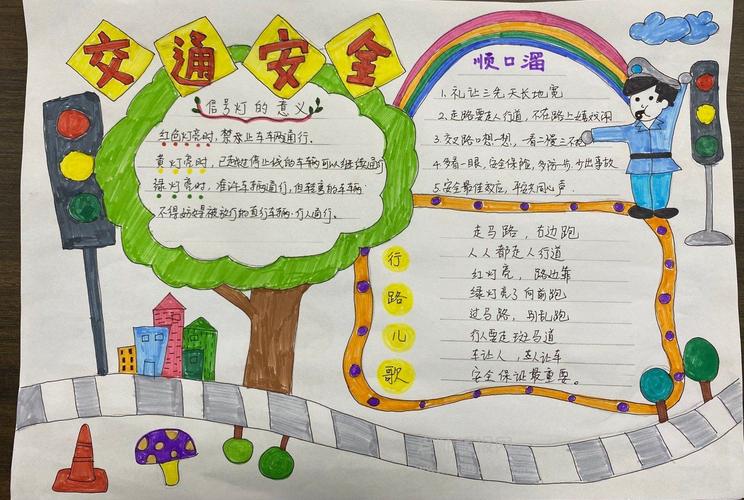 交通安全
信号灯的意义
红色灯亮时，禁止车车两通行。
黄灯亮时，已越过停止线的车辆可以继续通行
绿灯亮时，准许车辆通行，但转弯的车辆
不得妨碍被放行的直行车辆·行人通行。
顺口溜
1.礼让三先天长地宽
2.走路要走人行道，不在路上嬉戏闹
3.交叉路口想一想，一看二慢三不
4多看一眼，安全保险，多防一步，少出事故
5.安全最佳效应，平安共同心声
行路儿歌
走马路，右边跑
人人都走人行道
红灯亮，路边靠
绿灯亮了向前跑
过马路，别乱跑
行人要走斑马道
车让人，人让车
安全保证最重要。